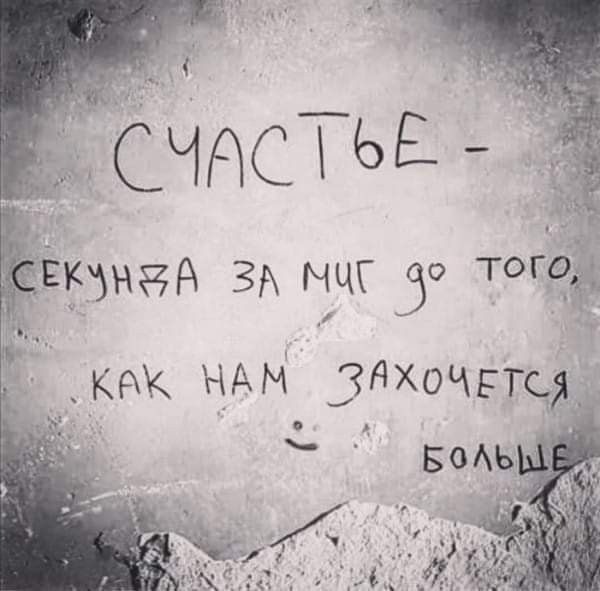 СЧАСТЬЕ -
СЕКУНДА ЗА МИГ до того,
КАК НАМ ЗАХОЧЕТСЯ
БОЛЬШЕ